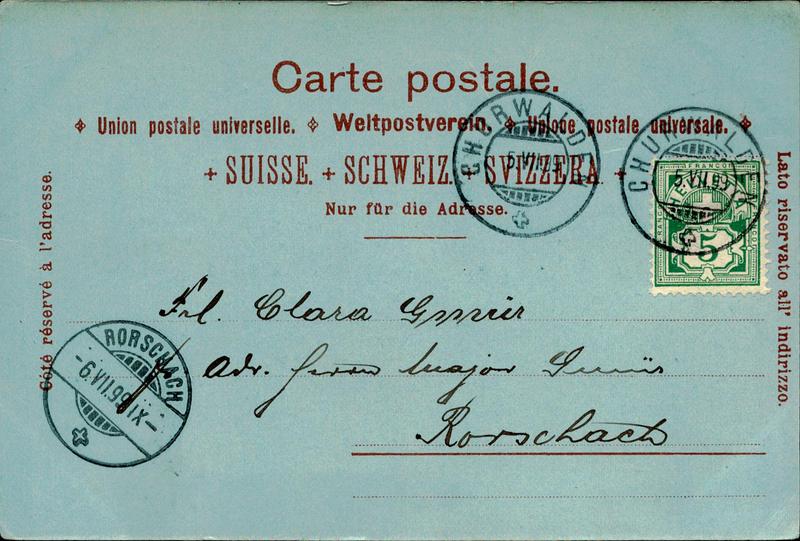 Carte postale.
Union postale universelle. Weltpostverein. Unione postale universale.
+ SUISSE. + SCHWEIZ. + SVIZZERA. +
Nur für die Adresse.
Côté réservé à l'adresse.
Lato riservato all' indirizzo.
CHURWALDEN
5.VII.99
CHURWALDEN
5.VII.99
FRANCO
HELVETIA
5
Frl. Clara Gmür
Adr. Herrn Major Gmür
Rorschach
RORSCHACH
-6.VII.99.IX-